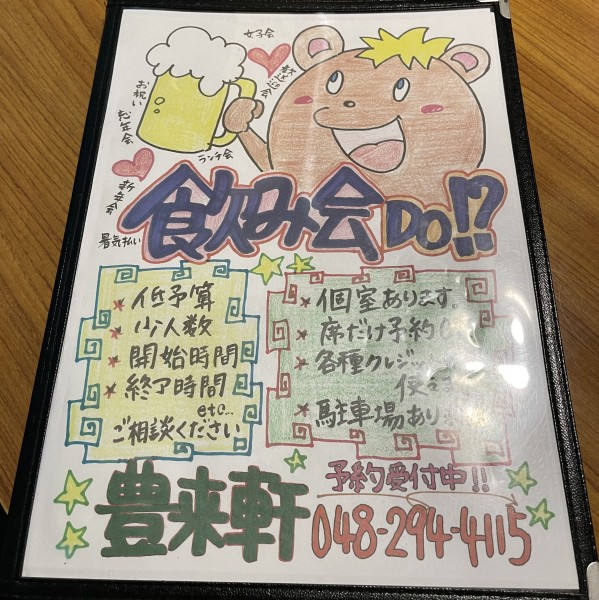 女子会
歓送迎会
お祝い
忘年会
ランチ会
新年会
暑気払い
飲み会DO!?
★低予算
★少人数
★開始時間
★終了時間
etc...
ご相談ください
★個室あります。
★席だけ予約O
★各種クレジッ
使え
★駐車場あり
豊来軒
予約受付中!!
048-294-4115